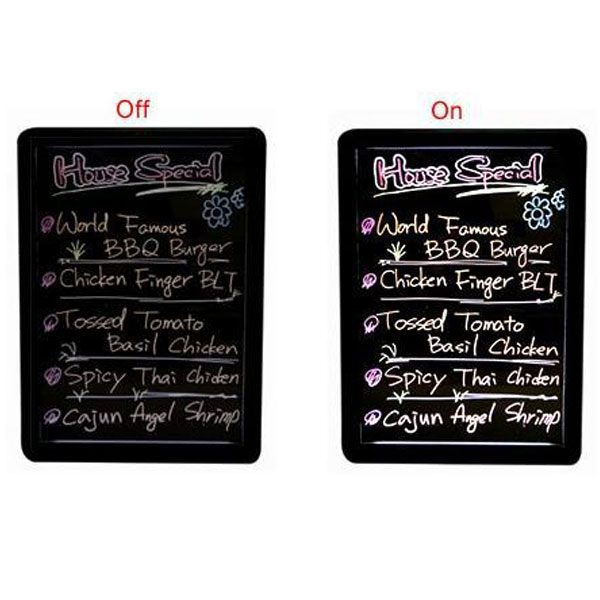 Off
House Special
World Famous
BBQ Burger
Chicken Finger BLT
Tossed Tomato
Basil Chicken
Spicy Thai Chicken
Cajun Angel Shrimp
On
House Special
World Famous
BBQ Burger
Chicken Finger BLT
Tossed Tomato
Basil Chicken
Spicy Thai Chicken
Cajun Angel Shrimp